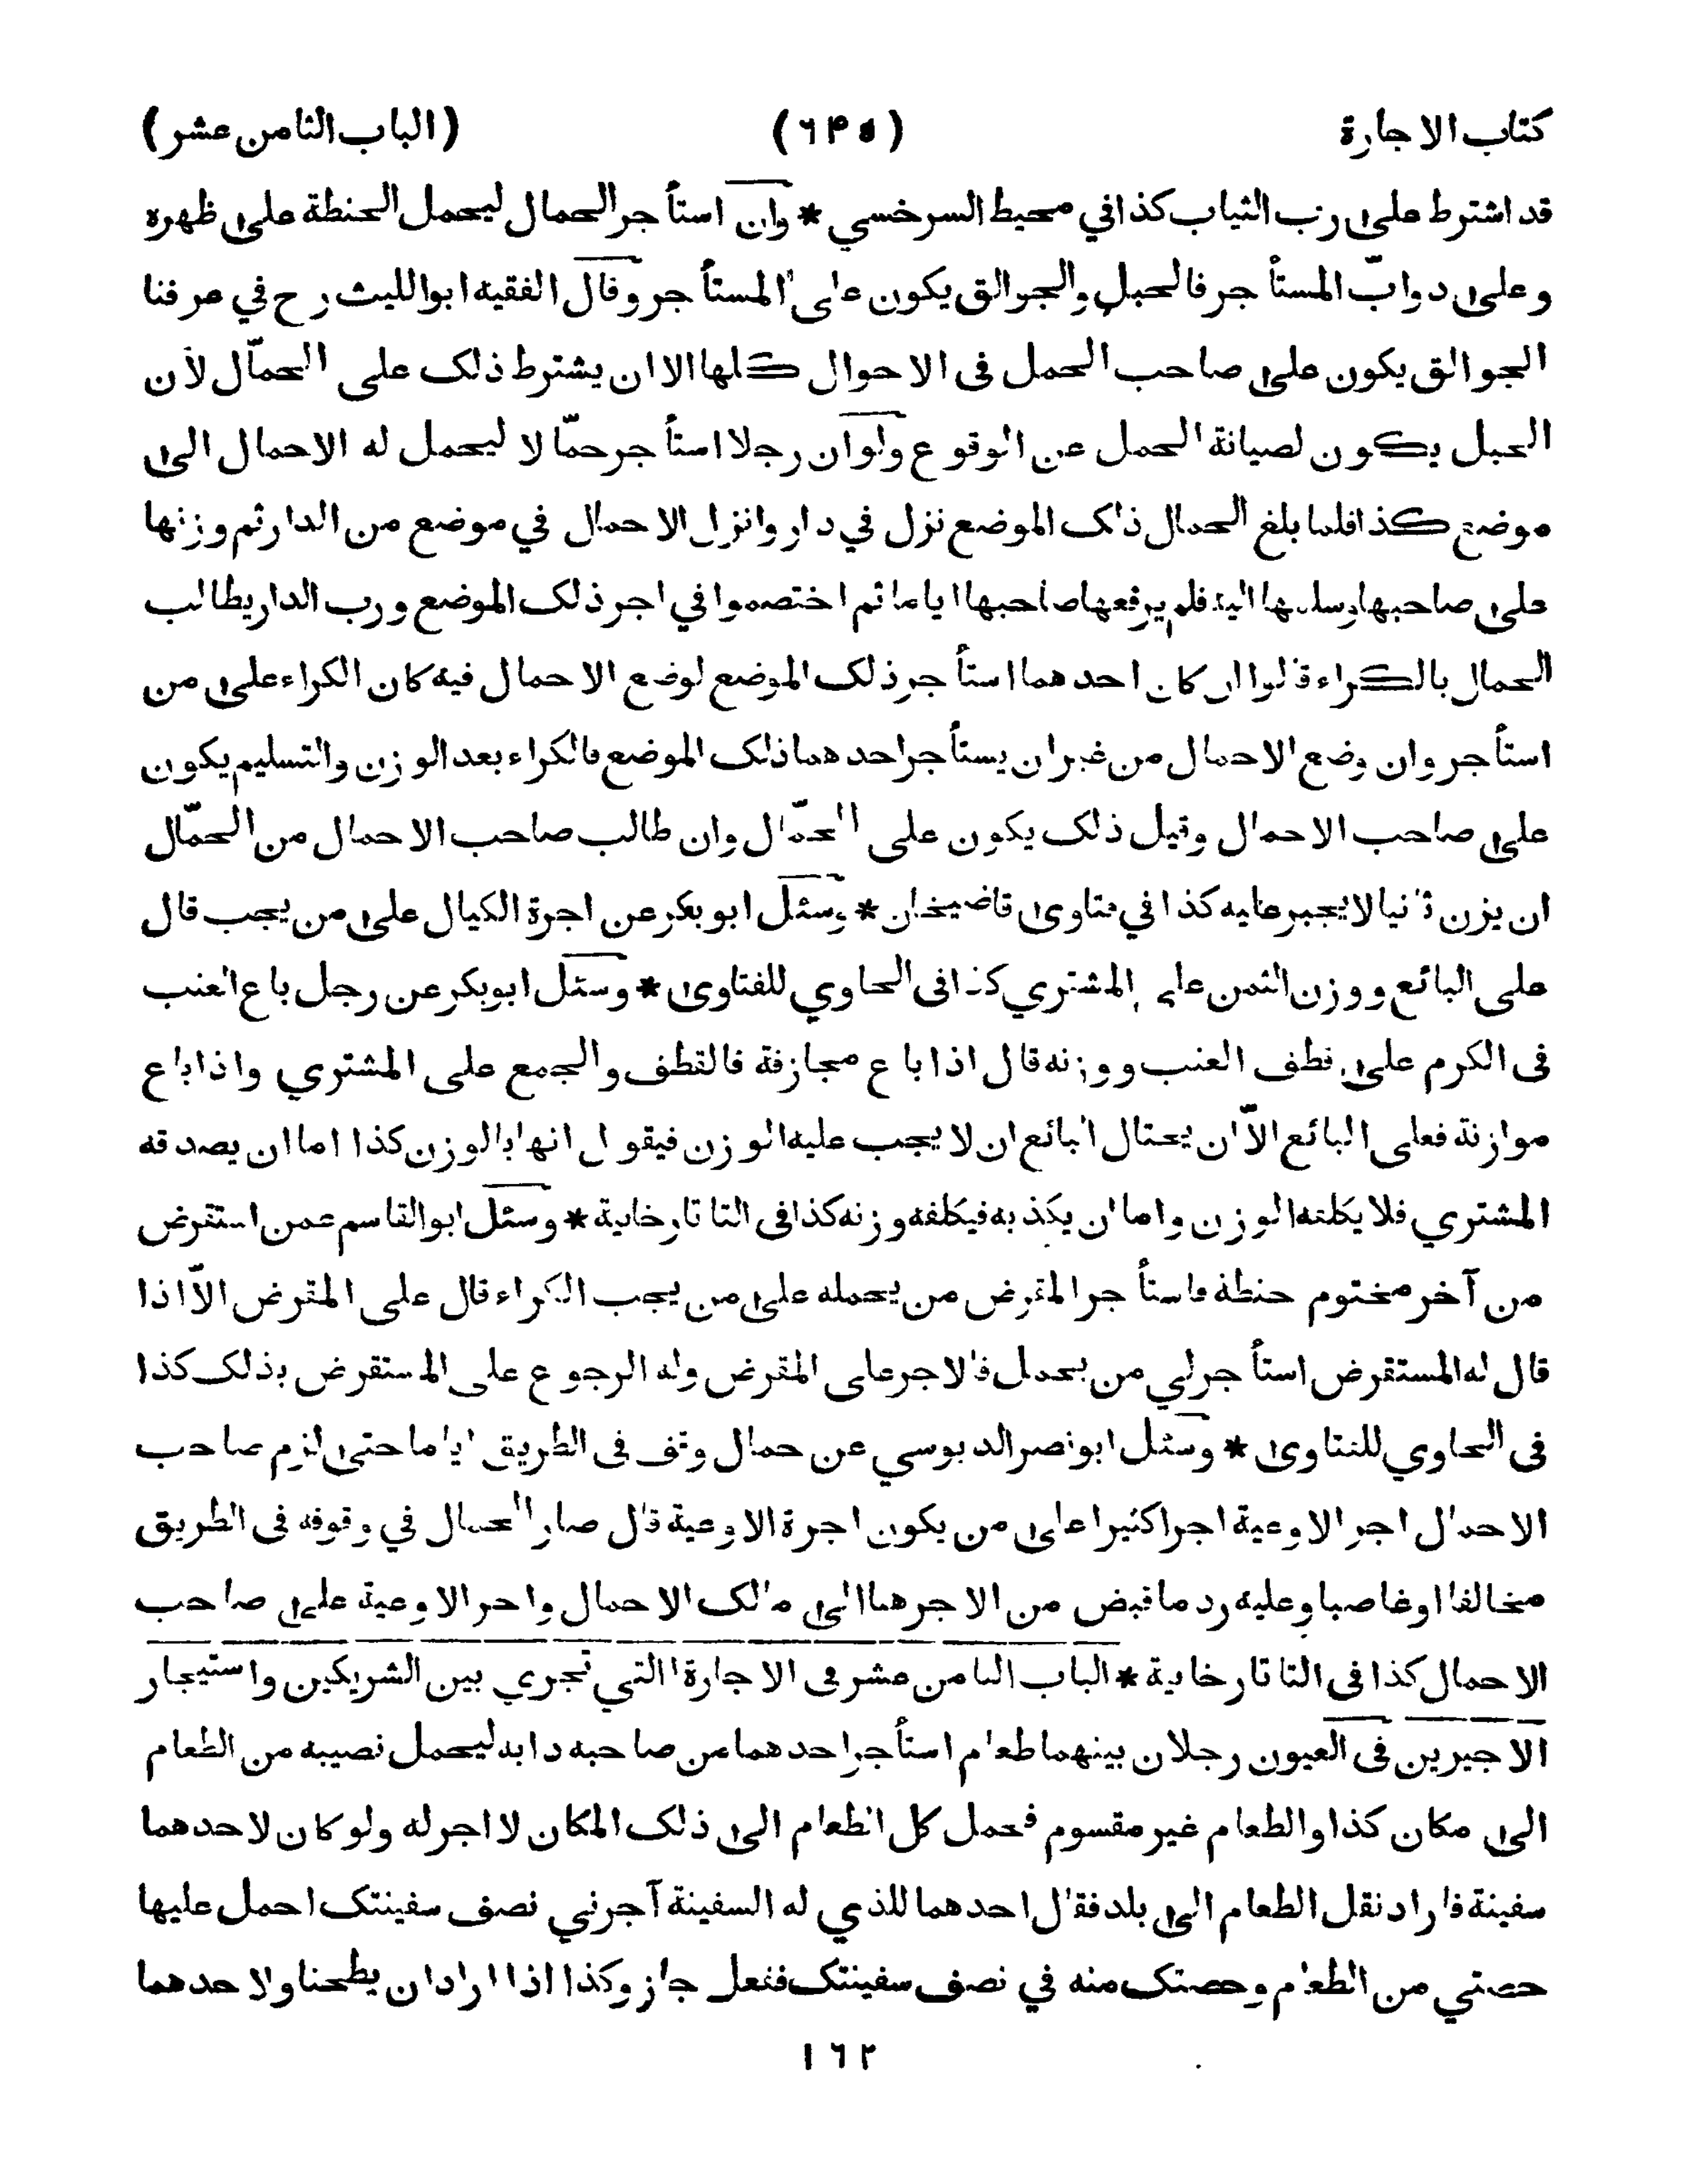 كتاب الاجارة (٦٤٥) (الباب الثامن عشر)
قد اشترط على رب الثياب كذا في محيط السرخسي * وان استأجر الحمال ليحمل الحنطة على ظهره
وعلى دوابّ المستأجر فالحبل والجوالق يكون على المستأجر وقال الفقيه ابو الليث رح في عرفنا
الجوالق يكون على صاحب الحمل فى الاحوال كلها الا ان يشترط ذلك على الحمّال لأن
الحبل يكون لصيانة الحمل عن الوقوع ولو ان رجلا استأجر حمّالا ليحمل له الاحمال الى
موضع كذا فلما بلغ الحمال ذلك الموضع نزل في دار وانزل الاحمال في موضع من الدار ثم وزنها
على صاحبها وسلمها اليه فلم يرفعها صاحبها اياما ثم اختصموا في اجر ذلك الموضع ورب الدار يطالب
الحمال بالكراء قالوا ان كان احدهما استأجر ذلك الموضع لوضع الاحمال فيه كان الكراء على من
استأجر وان وضع الاحمال من غير ان يستأجر احدهما ذلك الموضع فالكراء بعد الوزن والتسليم يكون
على صاحب الاحمال وقيل ذلك يكون على الحمّال وان طالب صاحب الاحمال من الحمّال
ان يزن ثانيا لا يجبر عليه كذا في فتاوى قاضيخان * وسئل ابو بكر عن اجرة الكيال على من يجب قال
على البائع ووزن الثمن على المشتري كذا فى الحاوي للفتاوى * وسئل ابوبكر عن رجل باع العنب
فى الكرم على قطف العنب ووزنه قال اذا باع مجازفة فالقطف والجمع على المشتري واذا باع
موازنة فعلى البائع الاّ ان يحتال البائع ان لا يجب عليه الوزن فيقول انها بالوزن كذا اما ان يصدقه
المشتري فلا يكلفه الوزن واما ان يكذبه فيكلفه وزنه كذا فى التاتارخانية * وسئل ابو القاسم عمن استقرض
من آخر مختوم حنطة فاستأجر المقرض من يحمله على من يجب الكراء قال على المقرض الاّ اذا
قال له المستقرض استأجر لي من يحمل فالاجر على المقرض وله الرجوع على المستقرض بذلك كذا
فى الحاوي للفتاوى * وسئل ابو نصر الدبوسي عن حمال وقف فى الطريق اياما حتى لزم صاحب
الاحمال اجر الاوعية اجرا كثيرا على من يكون اجرة الاوعية قال صار الحمال في وقوفه فى الطريق
مخالفا او غاصبا وعليه رد ما قبض من الاجر هما الى مالك الاحمال واجر الاوعية على صاحب
الاحمال كذا فى التاتارخانية * الباب الثامن عشر فى الاجارة التي تجري بين الشريكين واستيجار
الاجيرين فى العيون رجلان بينهما طعام استأجر احدهما من صاحبه دابه ليحمل نصيبه من الطعام
الى مكان كذا والطعام غير مقسوم فحمل كل الطعام الى ذلك المكان لا اجر له ولو كان لاحدهما
سفينة فاراد نقل الطعام الى بلد فقال احدهما للذي له السفينة آجرني نصف سفينتك احمل عليها
حصتي من الطعام وحصتك منه في نصف سفينتك ففعل جاز وكذا اذا ارادا ان يطحنا ولاحدهما
١٦٢